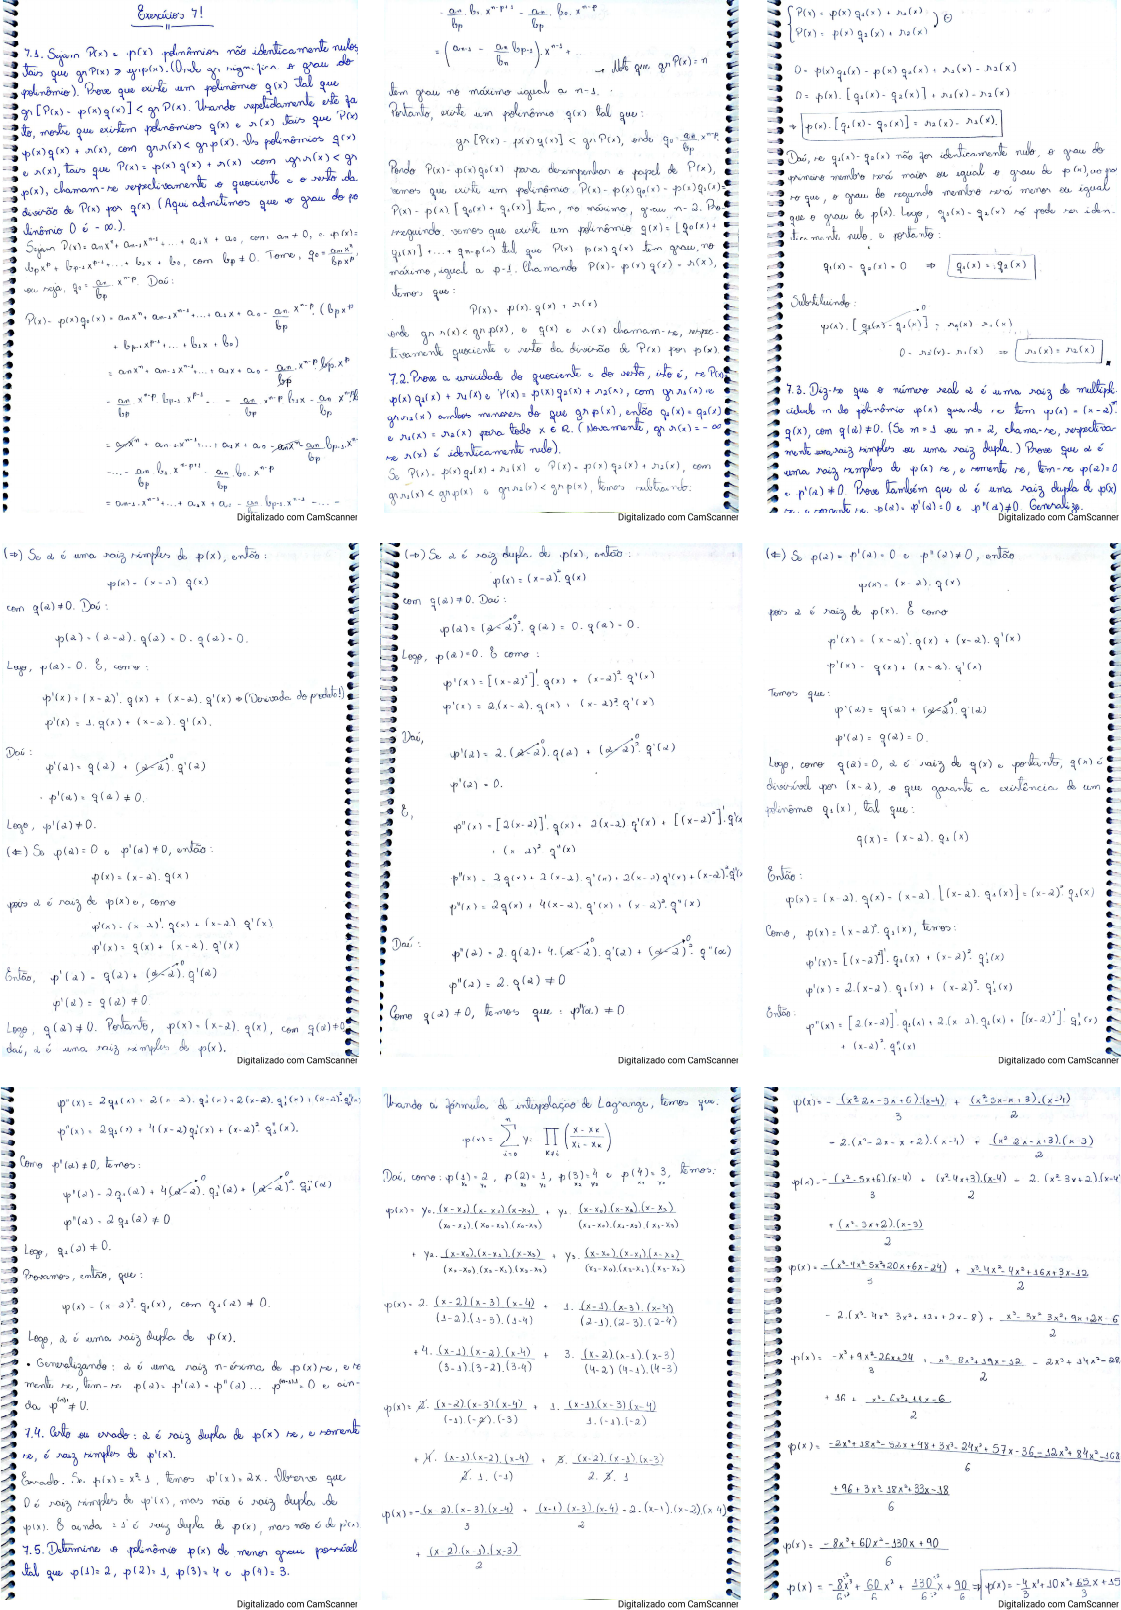 Exercícios 7!
7.1. Sejam P(x) e p(x) polinômios não identicamente nulos
tais que gr P(x) ≥ gr p(x). (Onde gr significa o grau do
polinômio). Prove que existe um polinômio q(x) tal que
gr [P(x) - p(x)q(x)] < gr P(x). Usando repetidamente este fa
to, mostre que existem polinômios q(x) e r(x) tais que P(x)
p(x)q(x) + r(x), com gr r(x) < gr p(x). Os polinômios q(x)
e r(x), tais que P(x) = p(x)q(x) + r(x) com gr r(x) < gr
p(x), chamam-se respectivamente o quociente e o resto da
divisão de P(x) por q(x) (Aqui admitimos que o grau do po
linômio 0 é -∞.).
Sejam P(x) = anxⁿ + an-1xⁿ⁻¹ + ... + a1x + a0, com an ≠ 0, e p(x) =
bpxᵖ + bp-1xᵖ⁻¹ + ... + b1x + b0, com bp ≠ 0. Tome, q0 = anxⁿ/bpxᵖ,
ou seja, q0 = an/bp xⁿ⁻ᵖ. Daí:
P(x) - p(x)q0(x) = anxⁿ + an-1xⁿ⁻¹ + ... + a1x + a0 - an/bp xⁿ⁻ᵖ (bpxᵖ
+ bp-1xᵖ⁻¹ + ... + b1x + b0)
= anxⁿ + an-1xⁿ⁻¹ + ... + a1x + a0 - an/bp xⁿ⁻ᵖ bpxᵖ
- an/bp xⁿ⁻ᵖ bp-1 xᵖ⁻¹ - ... - an/bp xⁿ⁻ᵖ b1x - an/bp xⁿ⁻ᵖ b0
= anxⁿ + an-1xⁿ⁻¹ + ... + a1x + a0 - anxⁿ - an/bp bp-1xⁿ⁻¹
- ... - an/bp b1 xⁿ⁻ᵖ⁺¹ - an/bp b0 xⁿ⁻ᵖ
= an-1xⁿ⁻¹ + ... + a1x + a0 - an/bp bp-1xⁿ⁻¹ - ... -
Digitalizado com CamScanner
- an/bp b1 xⁿ⁻ᵖ⁺¹ - an/bp b0 xⁿ⁻ᵖ
= (an-1 - an/bn bp-1) xⁿ⁻¹ + ...
→ Note que gr P(x) = n
tem grau no máximo igual a n-1.
Portanto, existe um polinômio q(x) tal que:
gr [P(x) - p(x)q(x)] < gr P(x), onde q0 = an/bp xⁿ⁻ᵖ
Pondo P(x) - p(x)q0(x) para desempenhar o papel de P(x),
vemos que existe um polinômio P(x) - p(x)q0(x) - p(x)q1(x) =
P(x) - p(x) [q0(x) + q1(x)] tem, no máximo, grau n-2. Pro
sseguindo, vemos que existe um polinômio q(x) = [q0(x) +
q1(x)] + ... + qn-p(x) tal que P(x) p(x)q(x) tem grau, no
máximo, igual a p-1. Chamando P(x) - p(x)q(x) = r(x),
temos que:
P(x) = p(x).q(x) + r(x)
onde gr r(x) < gr p(x), e q(x) e r(x) chamam-se, respec-
tivamente quociente e resto da divisão de P(x) por p(x).
7.2. Prove a unicidade do quociente e do resto, isto é, se P(x)
p(x)q1(x) + r1(x) e P(x) = p(x)q2(x) + r2(x), com gr r1(x) e
gr r2(x) ambos menores do que gr p(x), então q1(x) = q2(x)
e r1(x) = r2(x) para todo x ∈ R. (Novamente, gr r(x) = -∞
se r(x) é identicamente nulo).
Se P(x) = p(x)q1(x) + r1(x) e P(x) = p(x)q2(x) + r2(x), com
gr r1(x) < gr p(x) e gr r2(x) < gr p(x), temos subtraindo:
Digitalizado com CamScanner
P(x) = p(x)q1(x) + r1(x)
P(x) = p(x)q2(x) + r2(x) (-)
0 = p(x)q1(x) - p(x)q2(x) + r1(x) - r2(x)
0 = p(x).[q1(x) - q2(x)] + r1(x) - r2(x)
⇒ p(x).[q1(x) - q2(x)] = r2(x) - r1(x).
Daí, se q1(x) - q2(x) não for identicamente nulo, o grau do
primeiro membro será maior ou igual o grau de p(x), ao pas
so que, o grau do segundo membro será menor ou igual
que o grau de p(x). Logo, q1(x) - q2(x) só pode ser iden-
ticamente nulo, e portanto:
q1(x) - q2(x) = 0 ⇒ q1(x) = q2(x)
Substituindo:
p(x).[q1(x) - q2(x)] = r2(x) r1(x)
0 = r2(x) - r1(x) ⇒ r1(x) = r2(x)
7.3. Diz-se que o número real α é uma raiz de multipli-
cidade m do polinômio p(x) quando se tem p(x) = (x-α)ᵐ
q(x), com q(α) ≠ 0. (Se m = 1 ou m = 2, chama-se, respectiva-
mente uma raiz simples ou uma raiz dupla.) Prove que α é
uma raiz simples de p(x) se, e somente se, tem-se p(α) = 0
e p'(α) ≠ 0. Prove também que α é uma raiz dupla de p(x)
se, e somente se, p(α) = p'(α) = 0 e p''(α) ≠ 0. Generalize.
Digitalizado com CamScanner
(⇒) Se α é uma raiz simples de p(x), então:
p(x) = (x-α) q(x)
com q(α) ≠ 0. Daí:
p(α) = (α-α).q(α) = 0.q(α) = 0.
Logo, p(α) = 0. E, como:
p'(x) = (x-α)'.q(x) + (x-α).q'(x) ⇒ (Derivada do produto!)
p'(x) = 1.q(x) + (x-α).q'(x).
Daí:
p'(α) = q(α) + (α-α).q'(α)
p'(α) = q(α) ≠ 0.
Logo, p'(α) ≠ 0.
(⇐) Se p(α) = 0 e p'(α) ≠ 0, então:
p(x) = (x-α).q(x)
pois α é raiz de p(x) e, como
p'(x) = (x-α)'.q(x) + (x-α).q'(x)
p'(x) = q(x) + (x-α).q'(x)
Então, p'(α) = q(α) + (α-α).q'(α)
p'(α) = q(α) ≠ 0.
Logo, q(α) ≠ 0. Portanto, p(x) = (x-α).q(x), com q(α) ≠ 0
daí, α é uma raiz simples de p(x).
Digitalizado com CamScanner
(⇒) Se α é raiz dupla de p(x), então:
p(x) = (x-α)².q(x)
com q(α) ≠ 0. Daí:
p(α) = (α-α)².q(α) = 0.q(α) = 0.
Logo, p(α) = 0. E como:
p'(x) = [(x-α)²]'.q(x) + (x-α)².q'(x)
p'(x) = 2.(x-α).q(x) + (x-α)².q'(x)
Daí,
p'(α) = 2.(α-α).q(α) + (α-α)².q'(α)
p'(α) = 0.
E,
p''(x) = [2(x-α)]'.q(x) + 2(x-α) q'(x) + [(x-α)²]'.q'(x)
+ (x-α)² q''(x)
p''(x) = 2q(x) + 2(x-α).q'(x) + 2(x-α) q'(x) + (x-α)².q''(x)
p''(x) = 2q(x) + 4(x-α).q'(x) + (x-α)².q''(x)
Daí:
p''(α) = 2.q(α) + 4.(α-α).q'(α) + (α-α)².q''(α)
p''(α) = 2.q(α) ≠ 0
Como q(α) ≠ 0, temos que: p''(α) ≠ 0
Digitalizado com CamScanner
(⇐) Se p(α) = p'(α) = 0 e p''(α) ≠ 0, então
p(x) = (x-α).q(x)
pois α é raiz de p(x). E como
p'(x) = (x-α)'.q(x) + (x-α).q'(x)
p'(x) = q(x) + (x-α).q'(x)
Temos que:
p'(α) = q(α) + (α-α).q'(α)
p'(α) = q(α) = 0.
Logo, como q(α) = 0, α é raiz de q(x) e portanto, q(x) é
divisível por (x-α), o que garante a existência de um
polinômio q1(x), tal que:
q(x) = (x-α).q1(x)
Então:
p(x) = (x-α).q(x) = (x-α).[(x-α).q1(x)] = (x-α)².q1(x)
Como, p(x) = (x-α)².q1(x), temos:
p'(x) = [(x-α)²]'.q1(x) + (x-α)².q1'(x)
p'(x) = 2.(x-α).q1(x) + (x-α)².q1'(x)
Então:
p''(x) = [2(x-α)]'.q1(x) + 2.(x-α).q1'(x) + [(x-α)²]'.q1'(x)
+ (x-α)².q1''(x)
Digitalizado com CamScanner
p''(x) = 2q1(x) + 2(x-α).q1'(x) + 2(x-α).q1'(x) + (x-α)².q1''(x)
p''(x) = 2q1(x) + 4(x-α)q1'(x) + (x-α)².q1''(x).
Como p''(α) ≠ 0, temos:
p''(α) = 2q1(α) + 4(α-α).q1'(α) + (α-α)².q1''(α)
p''(α) = 2q1(α) ≠ 0
Logo, q1(α) ≠ 0.
Provamos, então, que:
p(x) = (x-α)².q1(x), com q1(α) ≠ 0.
Logo, α é uma raiz dupla de p(x).
• Generalizando: α é uma raiz n-ésima de p(x) se, e so
mente se, tem-se p(α) = p'(α) = p''(α) ... p⁽ⁿ⁻¹⁾ = 0 e ain-
da p⁽ⁿ⁾ ≠ 0.
7.4. Certo ou errado: α é raiz dupla de p(x) se, e somente
se, é raiz simples de p'(x).
Errado. Se p(x) = x² 1, temos p'(x) = 2x. Observe que
0 é raiz simples de p'(x), mas não é raiz dupla de
p(x). E ainda é raiz dupla de p(x), mas não é de p'(x).
7.5. Determine o polinômio p(x) de menor grau possível
tal que p(1) = 2, p(2) = 1, p(3) = 4 e p(4) = 3.
Digitalizado com CamScanner
Usando a fórmula de interpolação de Lagrange, temos que:
p(x) = Σ yi ∏ (x - xk / xi - xk)
Daí, como: p(1) = 2, p(2) = 1, p(3) = 4 e p(4) = 3, temos:
p(x) = y0.(x-x1).(x-x2).(x-x3)/(x0-x1).(x0-x2).(x0-x3) + y1.(x-x0).(x-x2).(x-x3)/(x1-x0).(x1-x2).(x1-x3)
+ y2.(x-x0).(x-x1).(x-x3)/(x2-x0).(x2-x1).(x2-x3) + y3.(x-x0).(x-x1).(x-x2)/(x3-x0).(x3-x1).(x3-x2)
p(x) = 2.(x-2)(x-3)(x-4)/(1-2).(1-3).(1-4) + 1.(x-1).(x-3).(x-4)/(2-1).(2-3).(2-4)
+ 4.(x-1).(x-2).(x-4)/(3-1).(3-2).(3-4) + 3.(x-2).(x-1).(x-3)/(4-2)(4-1).(4-3)
p(x) = 2.(x-2).(x-3).(x-4)/(-1).(-2).(-3) + 1.(x-1)(x-3)(x-4)/1.(-1).(-2)
+ 4.(x-1).(x-2).(x-4)/2.1.(-1) + 3.(x-2).(x-1).(x-3)/2.3.1
p(x) = -(x-2).(x-3).(x-4)/3 + (x-1).(x-3).(x-4)/2 - 2.(x-1).(x-2)(x-4)
+ (x-2).(x-1).(x-3)/2
Digitalizado com CamScanner
p(x) = -(x²-2x-3x+6).(x-4)/3 + (x²-3x-x+3).(x-4)/2
- 2.(x²-2x-x+2).(x-4) + (x²-2x-x+3).(x-3)/2
p(x) = -(x²-5x+6).(x-4)/3 + (x²-4x+3).(x-4)/2 - 2.(x²-3x+2).(x-4)
+ (x²-3x+2).(x-3)/2
p(x) = -(x³-4x²-5x²+20x+6x-24)/3 + x³-4x²-4x²+16x+3x-12/2
- 2.(x³-4x²-3x²+12x+2x-8) + x³-3x²-3x²+9x+2x-6/2
p(x) = -x³+9x²-26x+24/3 + x³-8x²+19x-12/2 - 2x³+14x²-28
+ 16 + x³-6x²+11x-6/2
p(x) = -2x³+18x²-52x+48+3x³-24x²+57x-36-12x³+84x²-168
+96+3x³-18x²+33x-18/6
p(x) = -8x³+60x²-130x+90/6
p(x) = -8x³/6 + 60x²/6 + 130x/6 + 90/6 ⇒ p(x) = -4/3x³+10x²+65/3x+15
Digitalizado com CamScanner